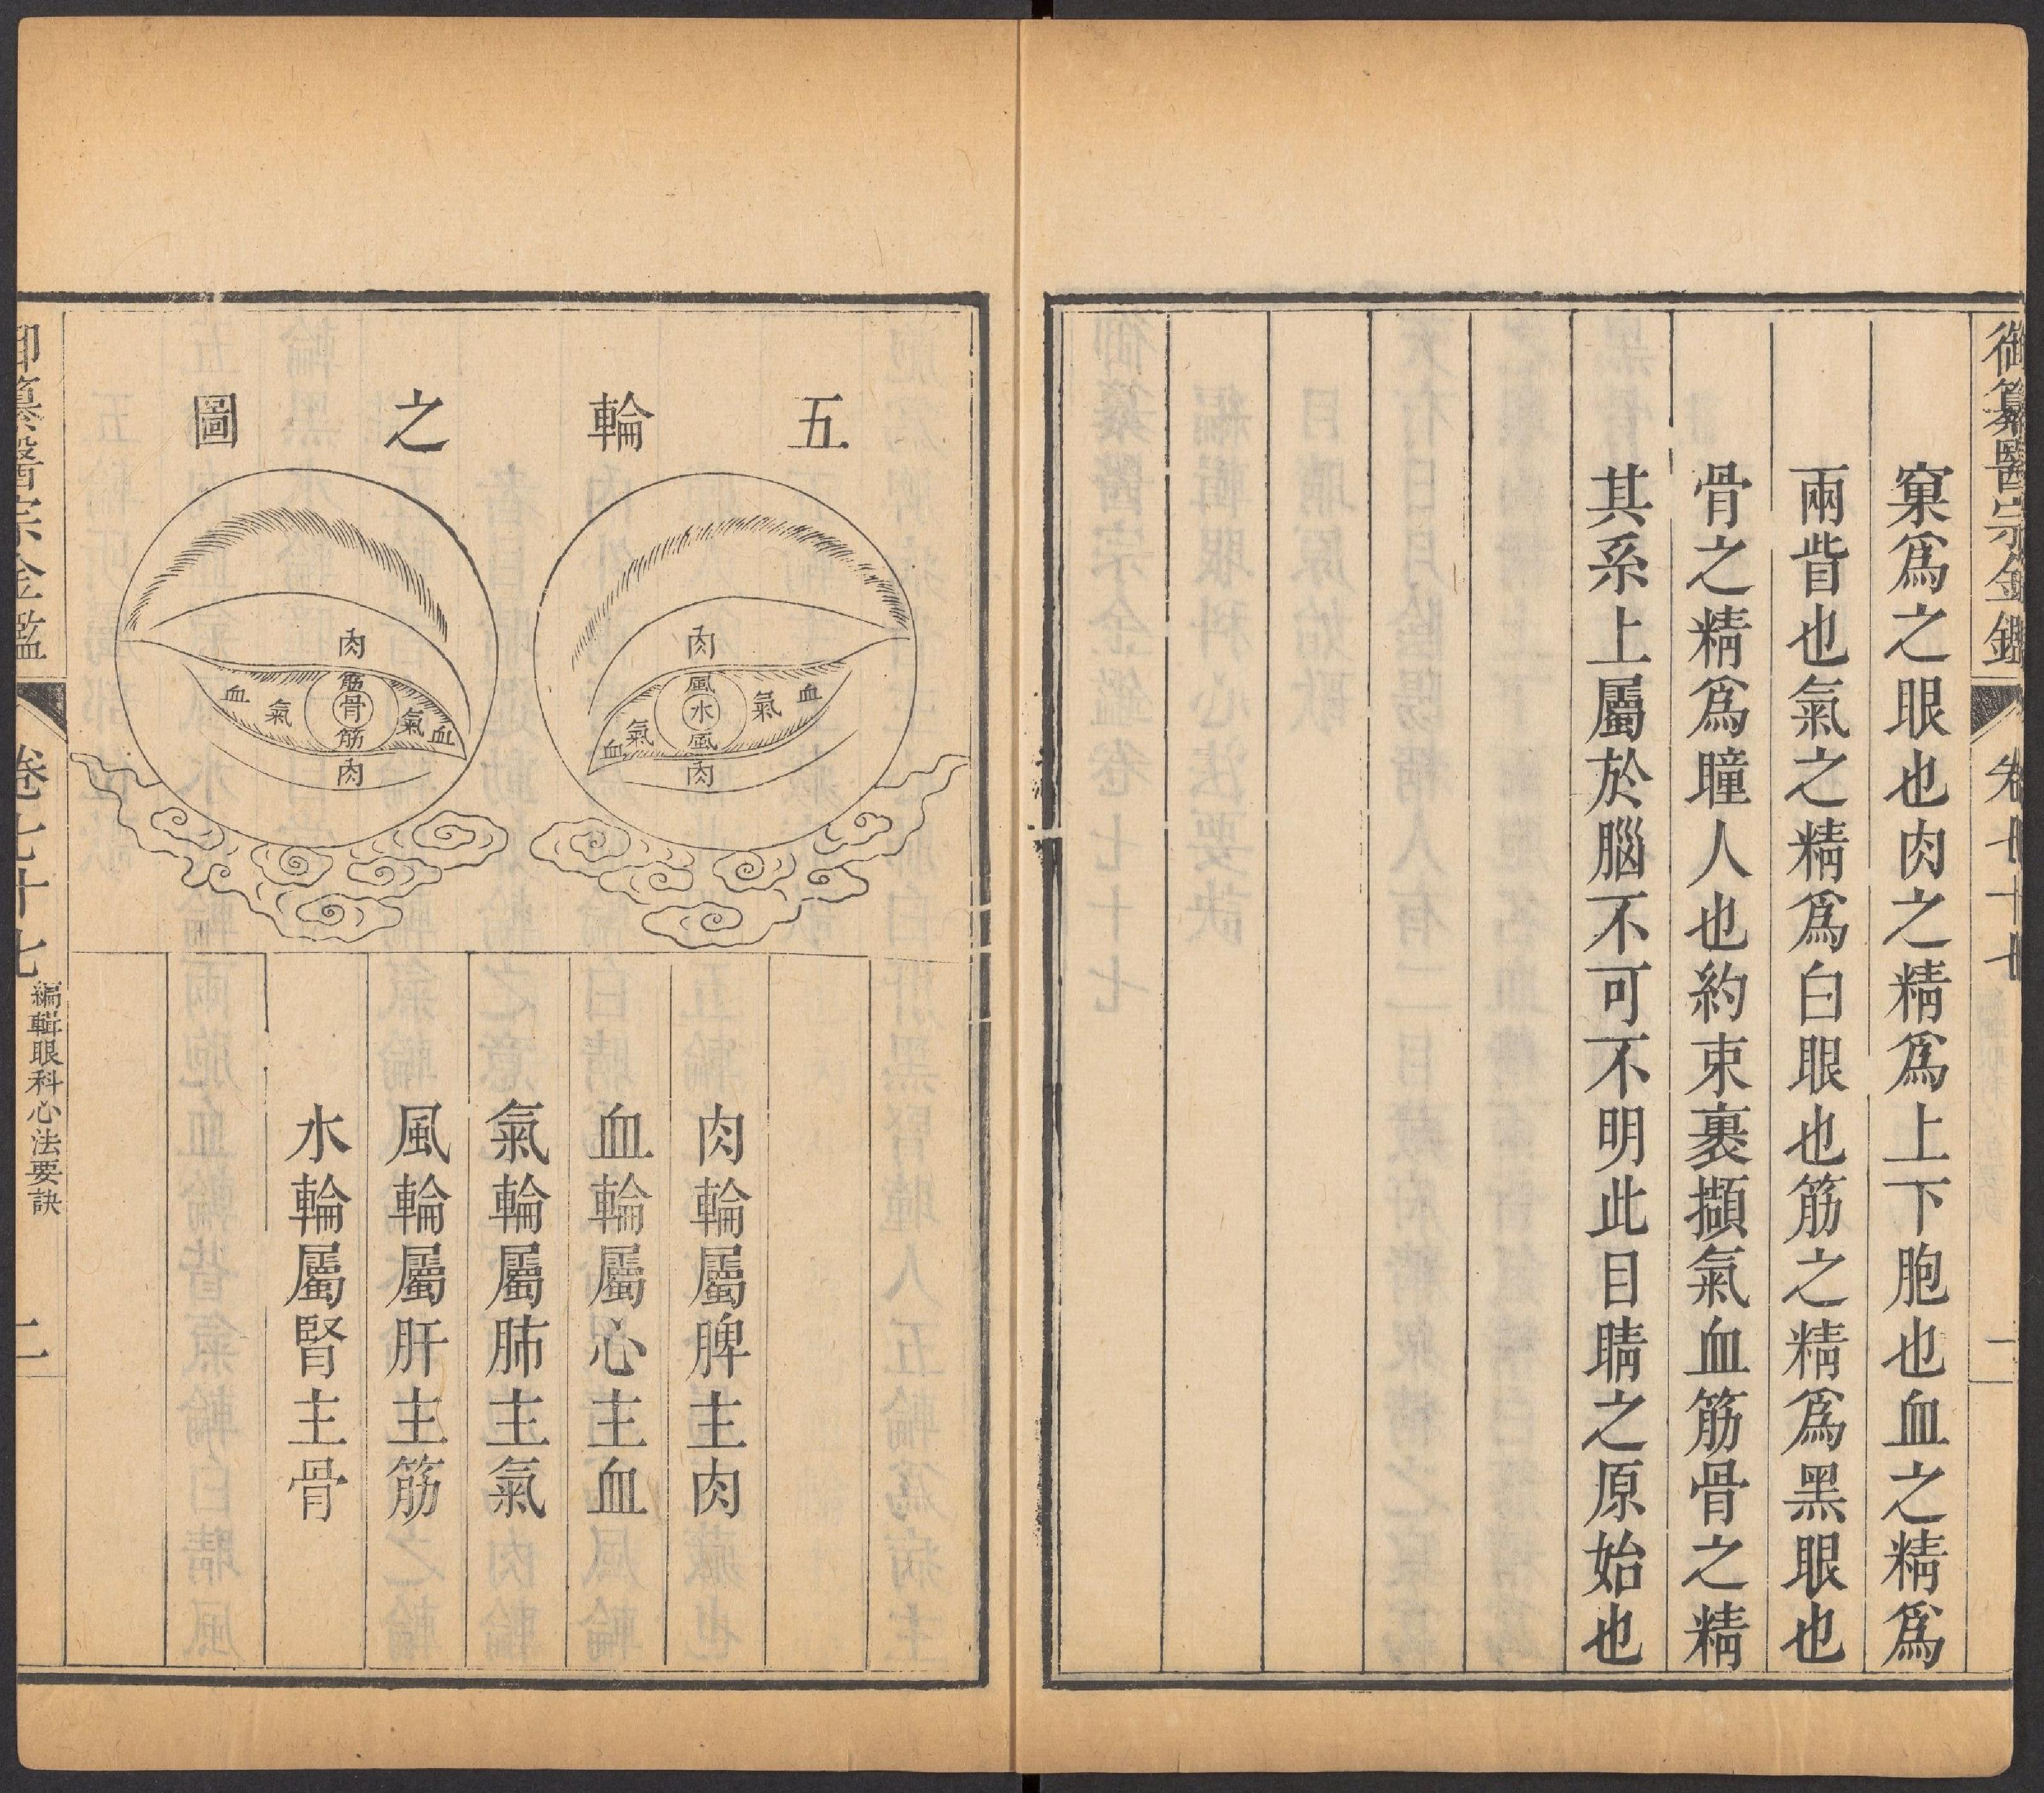 御纂醫宗金鑑 卷七十七 一
窠爲之眼也肉之精爲上下胞也血之精爲
兩眥也氣之精爲白眼也筋之精爲黑眼也
骨之精爲瞳人也約束裹擷氣血筋骨之精
其系上屬於腦不可不明此目睛之原始也
五輪之圖
肉
風
水
風
肉
氣
血
氣
血
肉
筋
骨
筋
肉
氣
血
氣
血
肉輪屬脾主肉
血輪屬心主血
氣輪屬肺主氣
風輪屬肝主筋
水輪屬腎主骨
御纂醫宗金鑑 卷七十七 編輯眼科心法要訣 二